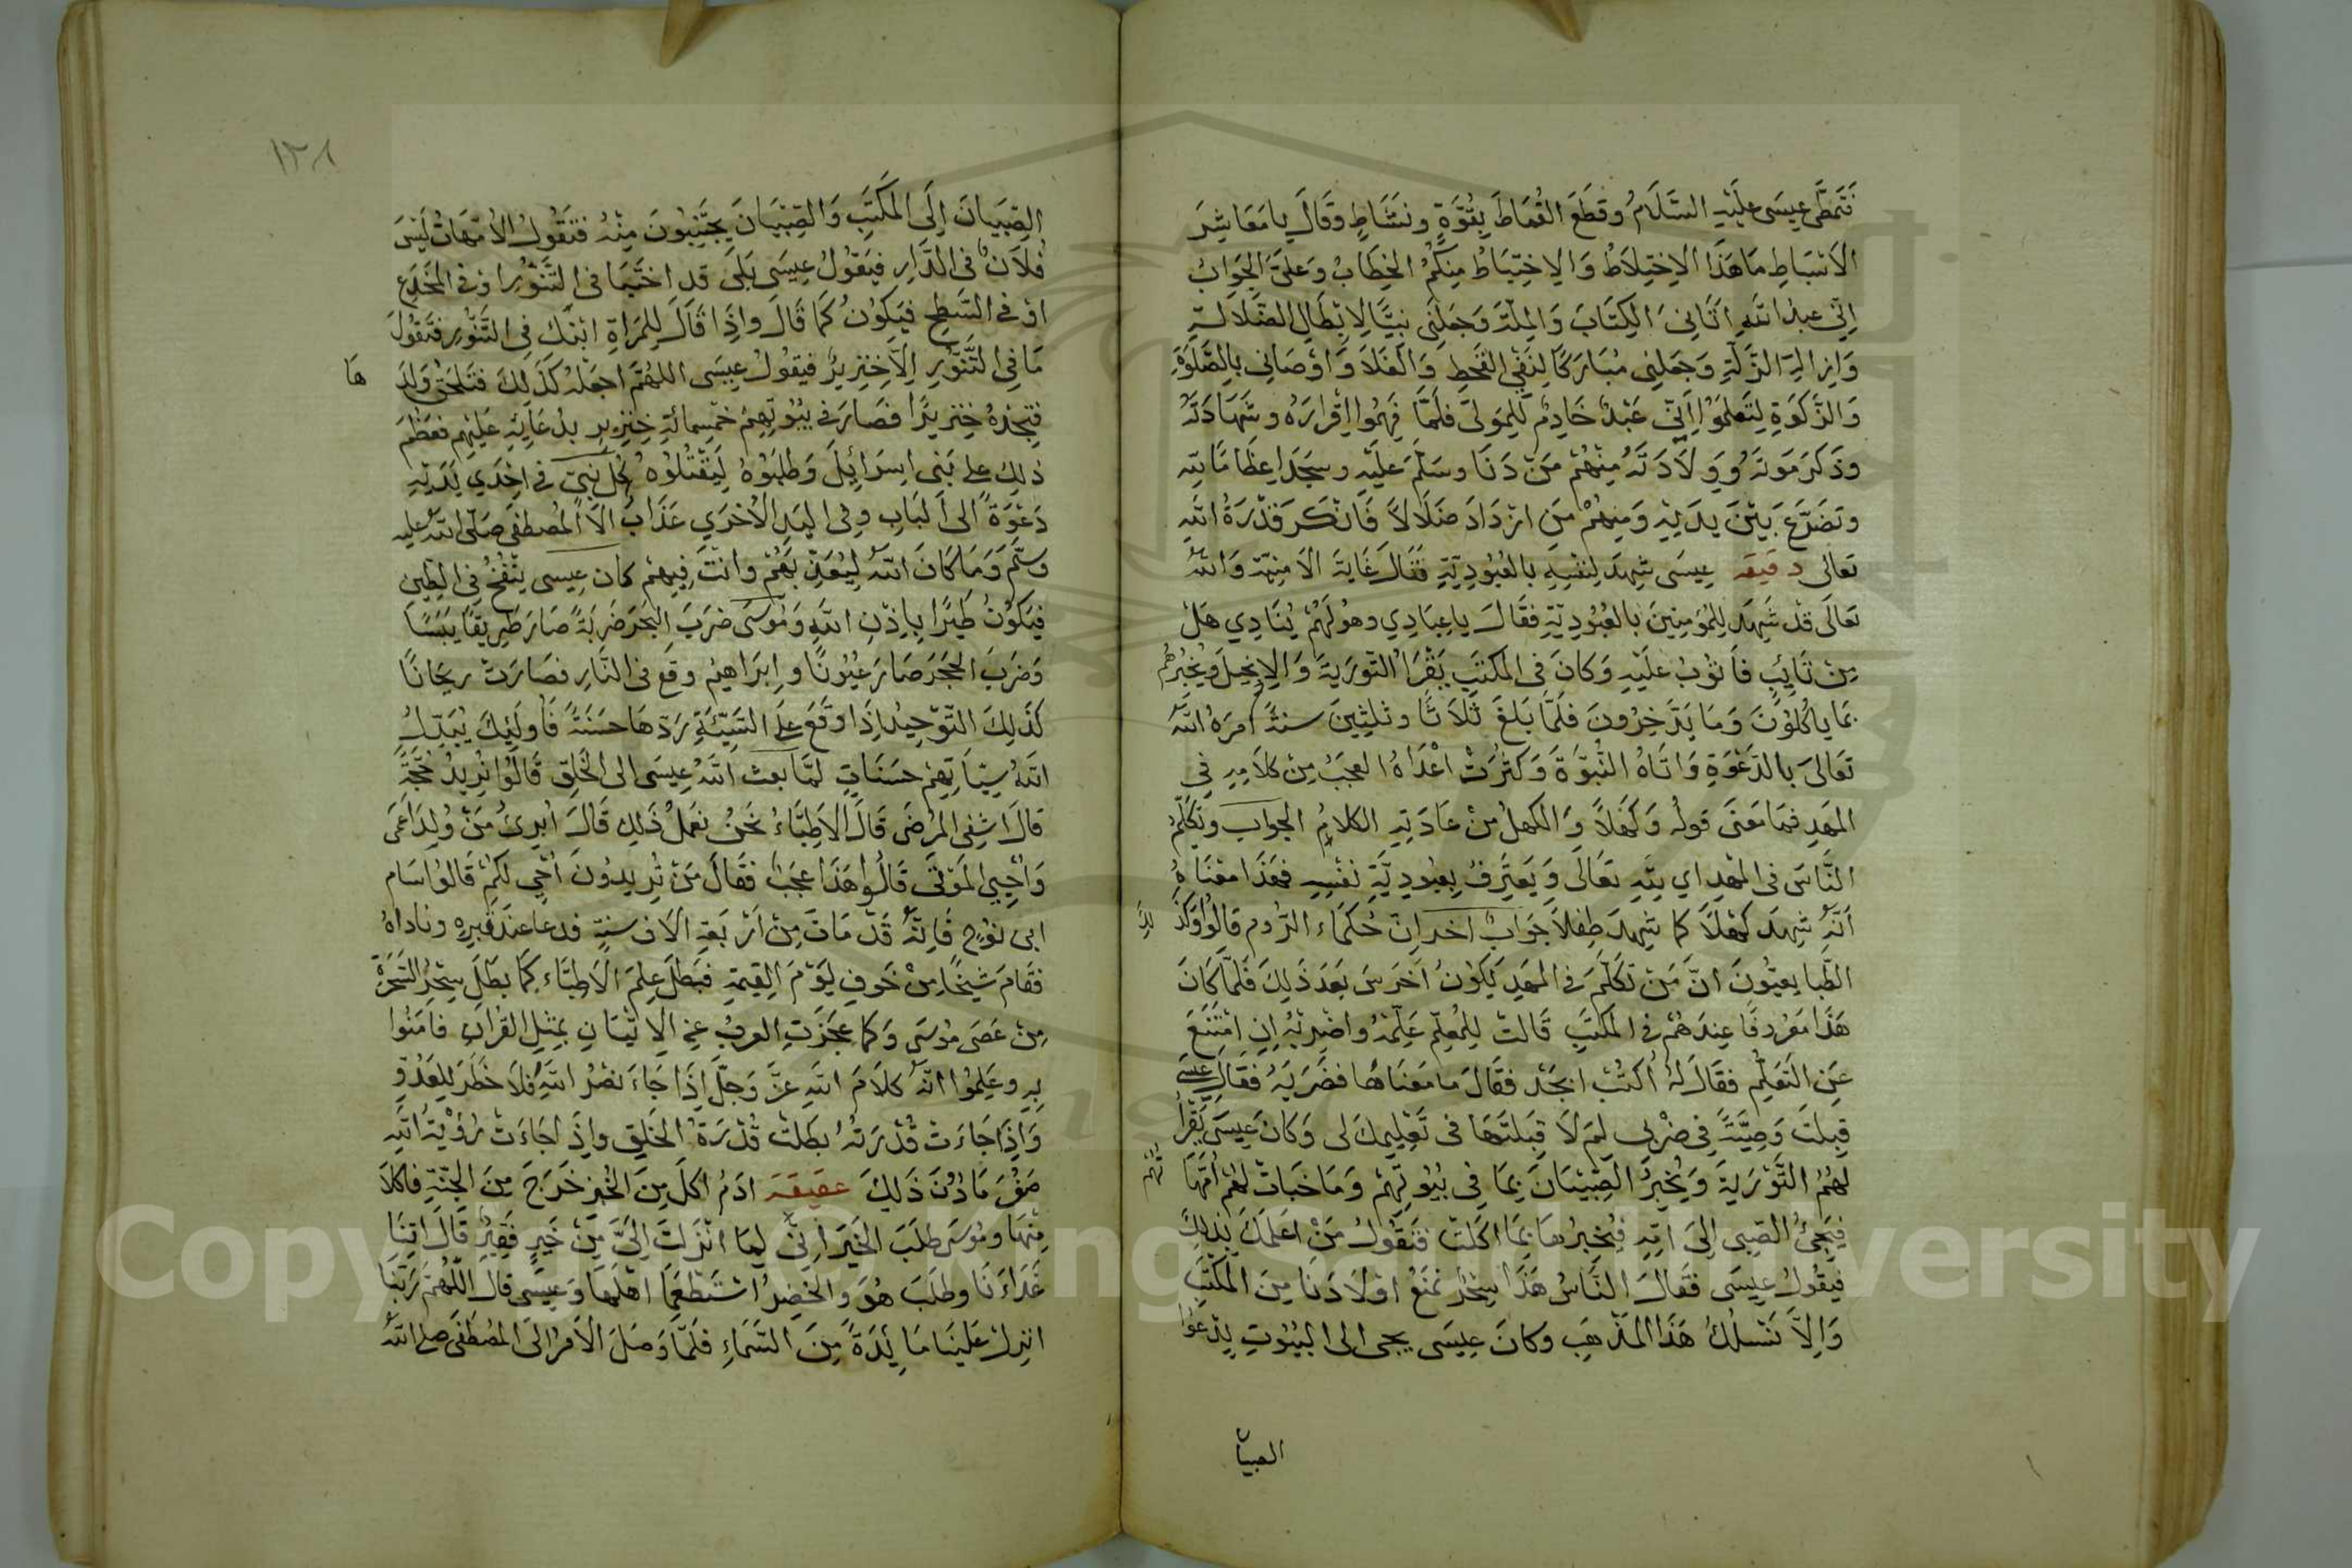 فَتَمَطَّى عِيسَى عَلَيْهِ السَّلَامُ وَقَطَعَ القُمَاطَ بِقُوَّةٍ وَنَشَاطٍ وَقَالَ يا مَعَاشِرَ
الاَسْبَاطِ مَا هَذَا الاِخْتِلَاطُ وَالاِخْتِبَاطُ مِنْكُمُ الخِطَابُ وَعَلَيَّ الجَوَابُ
اِنِّي عبدُ اللهِ اَتَانِيَ الكِتَابَ وَالمِلَّةَ وَجَعَلَنِي نَبِيًّا لِاِبْطَالِ الضَّلَالَةِ
وَاِزالَةِ الزَّلَّةِ وَجَعَلَنِي مُبَارَكًا لِنَفْيِ القَحْطِ وَالغَلَا وَاَوْصَانِي بِالصَّلَوةِ
وَالزَّكَوةِ لِتَعْلَمُوا اَنِّي عَبْدٌ خَادِمٌ لِلمَوْلَى فَلَمَّا فَهِمُوا اِقْرَارَهُ وشَهَادَتَهُ
وذَكَرَ مَوتَهُ وَوِلَادَتَهُ مِنْهُمْ مَنْ دَنَا وسَلَّمَ عَلَيْهِ وسَجَدَ اِعظَامًا لله
وتَضَرَّعَ بَيْنَ يَدَيْهِ وَمِنهُمْ مَنِ ازْدَادَ ضَلَالًا فَانْكَرَ قُدْرَةَ اللهِ
تَعَالى دقيقه عِيسَى شَهِدَ لِنَفْسِهِ بالعُبُودِيَّةِ فَقَالَ غَايَةَ الاُمْنِيَّة وَاللهُ
تَعَالَى قَدْ شَهِدَ لِلمُؤْمِنِينَ بالعُبُودِيَّةِ فقَالَ ياعِبَادِي وهو لَهُمْ يُنَادِي هَلْ
مِنْ تَائِبٍ فَاَتُوبُ عَلَيْهِ وَكَانَ فِي المَكْتَبِ يَقْرَاُ التَّورَيةَ وَالاِنجِيلَ ويُخْبِرُهُم
بِمَا يَاكُلُونَ وَمَا يَدَّخِرُونَ فَلَمَّا بَلَغَ ثَلَاثًا وثلثِينَ سنةً اَمَرَهُ اللهُ
تَعَالَى بالدَّعْوَةِ وَاَتَاهُ النُّبُوَّةَ وَكَثُرَتْ اَعْدَاهُ العجبُ مِنْ كلَامِهِ فِي
المَهدِ فمَا مَعنَى قولهُ وَكَهْلًا وَالكَهلُ مِنْ عَادَتِهِ الكلامُ الجواب ويُكَلِّمُ
النَّاسَ فِي المَهْدِ اي لله تعَالَى وَيَعتَرِفُ بِعُبُودِيَّةِ نفْسِهِ فهَذَا معْنَاهُ
اَنَّهُ شَهِدَ كَهْلًا كما شَهِدَ طِفلًا جَوَابٌ اخر اِنَّ حُكَمَاءَ الرُّومِ قَالُوا وَكَذَ لِكَ
الطَّبايعيُّونَ انَّ مَنْ تَكَلَّمَ فِي المَهدِ يَكُونُ اَخْرَسَ بَعْدَ ذَلِكَ فَلَمَّا كَانَ
هَذَا مَعْرُوفًا عِندَهُمْ فِي المَكْتَبِ قَالَتْ لِلْمُعلِّمِ عَلِّمْهُ وَاضْرِبْهُ اِنِ امْتَنَعَ
عَنِ التَعَلُّمِ فقَالَ لَهُ اُكْتُبْ ابجَدْ فقَالَ ما مَعْنَاهَا فضَرَبَهُ فَقَالَ عيسَى
قَبِلْتَ وَصِيَّةً فِي ضَرْبِي لِمَ لَا قَبِلْتَهَا فِي تَعْلِيمِكَ لِي وَكَانَ عِيسَى يَقْرَأُ
لَهُمُ التَّوْرَيةَ وَيُخْبِرُ الصِّبْيَانَ بِمَا فِي بُيُوتِهِمْ وَمَا خَبَاتْ لَهُمْ اُمَّهَا تُهُم
فيَجِئُ الصَّبِي اِلَى اُمِّهِ فيُخبِرُهَا بِمَا اَكَلَتْ فَتَقُولُ مَنْ اَعْلَمَكَ بِذلِكَ
فيقُولُ عِيسَى فقَالَ النَّاسُ هَذَا سِحْرٌ نَمْنَعُ اَوْلَادَنَا مِنَ المَكْتَبِ
وَاِلَّا نَسْلُكُ هَذَا المَذْهَبَ وكانَ عِيسَى يجى الى البُيُوتِ يَدْعُوا
الصبيان
١٢٨
الصِّبْيَانَ اِلَى المَكْتَبِ وَالصِّبْيَانَ يَجْتَنِبُونَ مِنْهُ فتَقُولُ الاُمَّهَاتُ لَيْسَ
فُلَانٌ فِي الدَّارِ فيَقُولُ عِيسَى بَلَى قد اختَبَأ في التَّنُّورِ اوْ في المخدَعِ
اوْ في السَّطْحِ فيَكُونُ كَمَا قَالَ واِذَا قَالَ لِلمَرْاَةِ ابْنُكَ فِي التَّنُّورِ فتَقُولُ
مَا فِي التَّنُّورِ اِلَّا خِنْزِيرٌ فيقُولُ عِيسَى اللهُمَّ اجعَلهُ كَذَلِكَ فتَلحَقُ وَلَدَ هَا
فتَجِدْهُ خِنْزِيرًا فصَارَ في بُيُوتِهِمْ خمسمائَةِ خِنْزِيرٍ بدُعَايِهِ عَلَيْهِمْ فعَظُمَ
ذلِكَ على بَنِي اِسرَائِيلَ وَطَلَبُوهُ لِيَقْتُلُوهُ لِكُلِّ نَبيٍّ في اِحْدَي يَدَيْهِ
دَعْوَةٌ الى البَابِ وفي اليَدِ الاُخْرَي عَذَابٌ اِلَّا المُصْطَفَى صلّى الله عليه
وسَلَّمَ وَمَا كَانَ اللهُ لِيُعَذِّبَهُمْ وانْتَ فِيهِمْ كان عِيسى يَنْفُخُ فِي الطِّينِ
فيَكُونُ طَيْرًا بِاِذْنِ اللهِ وَمُوسَى ضَرَبَ البَحْرَ ضَرْبَةً صَارَ طَرِيقًا يَبَسًا
وَضَرَبَ الحَجَرَ صَارَ عُيُونًا وَاِبرَاهِيمُ وقَعَ في النَّارِ فصَارَتْ رَيْحَانًا
كَذَلِكَ التَّوْحِيدُ اِذَا وَقَعَ علَى السَّيِّئَةِ رَدَّهَا حسَنَةً فَاُولَئِكَ يُبَدِّلُ
اللهُ سَيِّاتِهِمْ حسَنَاتٍ لمّا بعث اللهُ عِيسَى الى الخَلْقِ قَالُوا نُرِيدُ حُجَّةً
قالَ اشْفِي المَرْضَى قَالَ الاَطِبَّاءُ نَحْنُ نعْمَلُ ذَلِكَ قَالَ اُبْرِئُ مَنْ وُلِدَ اَعمَى
وَاُحْيِي المَوْتَى قَالُوا هَذَا عجَبٌ فقَالَ مَنْ تُرِيدُونَ اُحْيِي لَكُمْ قَالُوا سَام
ابن نُوحٍ فَاِنَّهُ قَدْ مَاتَ مِنْ اَرْبَعَةِ الَافِ سنةٍ فدعا عندَ قَبرِهِ وناداهُ
فقَامَ شَيْخًا مِنْ خَوفِ يَوْمِ القِيمَةِ فبَطَلَ عِلمَ الاَطِبَّاءِ كَمَا بطَلَ سِحْرُ السَّحَرَةِ
مِنْ عَصَى مُوسَى وَكما عجَزَتِ العربُ عن الاِتْيَانِ بِمِثْلِ القُرْاَنِ فامَنُوا
بِهِ وعَلِمُوا اَنَّهُ كلَامَ اللهِ عزَّ وَجلَّ اِذَا جَاءَ نصْرُ اللهِ فَلَا خَطَرَ لِلعَدُوِّ
وَاِذَا جَاءَتْ قُدْرَتُهُ بطَلَتْ قُدْرَةُ الخَلْقِ واِذَا جَاءَتْ رُؤْيَةُ اللهِ
مَادُونَ ذَلِكَ عقيقه ادَمُ اَكَلَ مِنَ الخُبزِ خَرَجَ مِنَ الجَنَّةِ فاكلَا
مِنْهَا ومُوسَى طلَبَ الخَيرَ اِنِّي لِمَا اَنْزَلْتَ اِلَيَّ مِنْ خَيرٍ فَقِيرٌ قَالَ اتِنَا
غَدَاءَنَا وطَلَبَ هُوَ وَالخَضِرُ اسْتَطْعَمَا اَهْلَهَا وَعِيسَى قالَ اللّهُمَّ رَبَّنَا
انزِلْ عَلَيْنَا مَائِدَةً مِنَ السَّمَاءِ فلَمَّا وَصَلَ الاَمرُ الَى المُصْطَفَى صلى اللهُ
Copyright © King Saud University